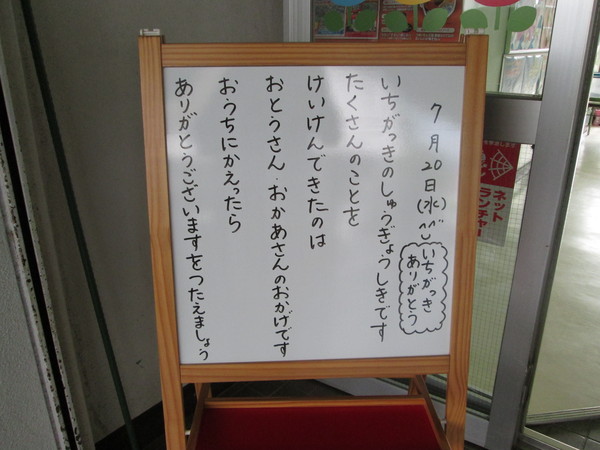 7月20日(水)^^
いちがっき
ありがとう
いちがっきのしゅうぎょうしきです
たくさんのことを
けいけんできたのは
おとうさん・おかあさんのおかげです
おうちにかえったら
ありがとうございますをつたえましょう
ネット
ランチャー